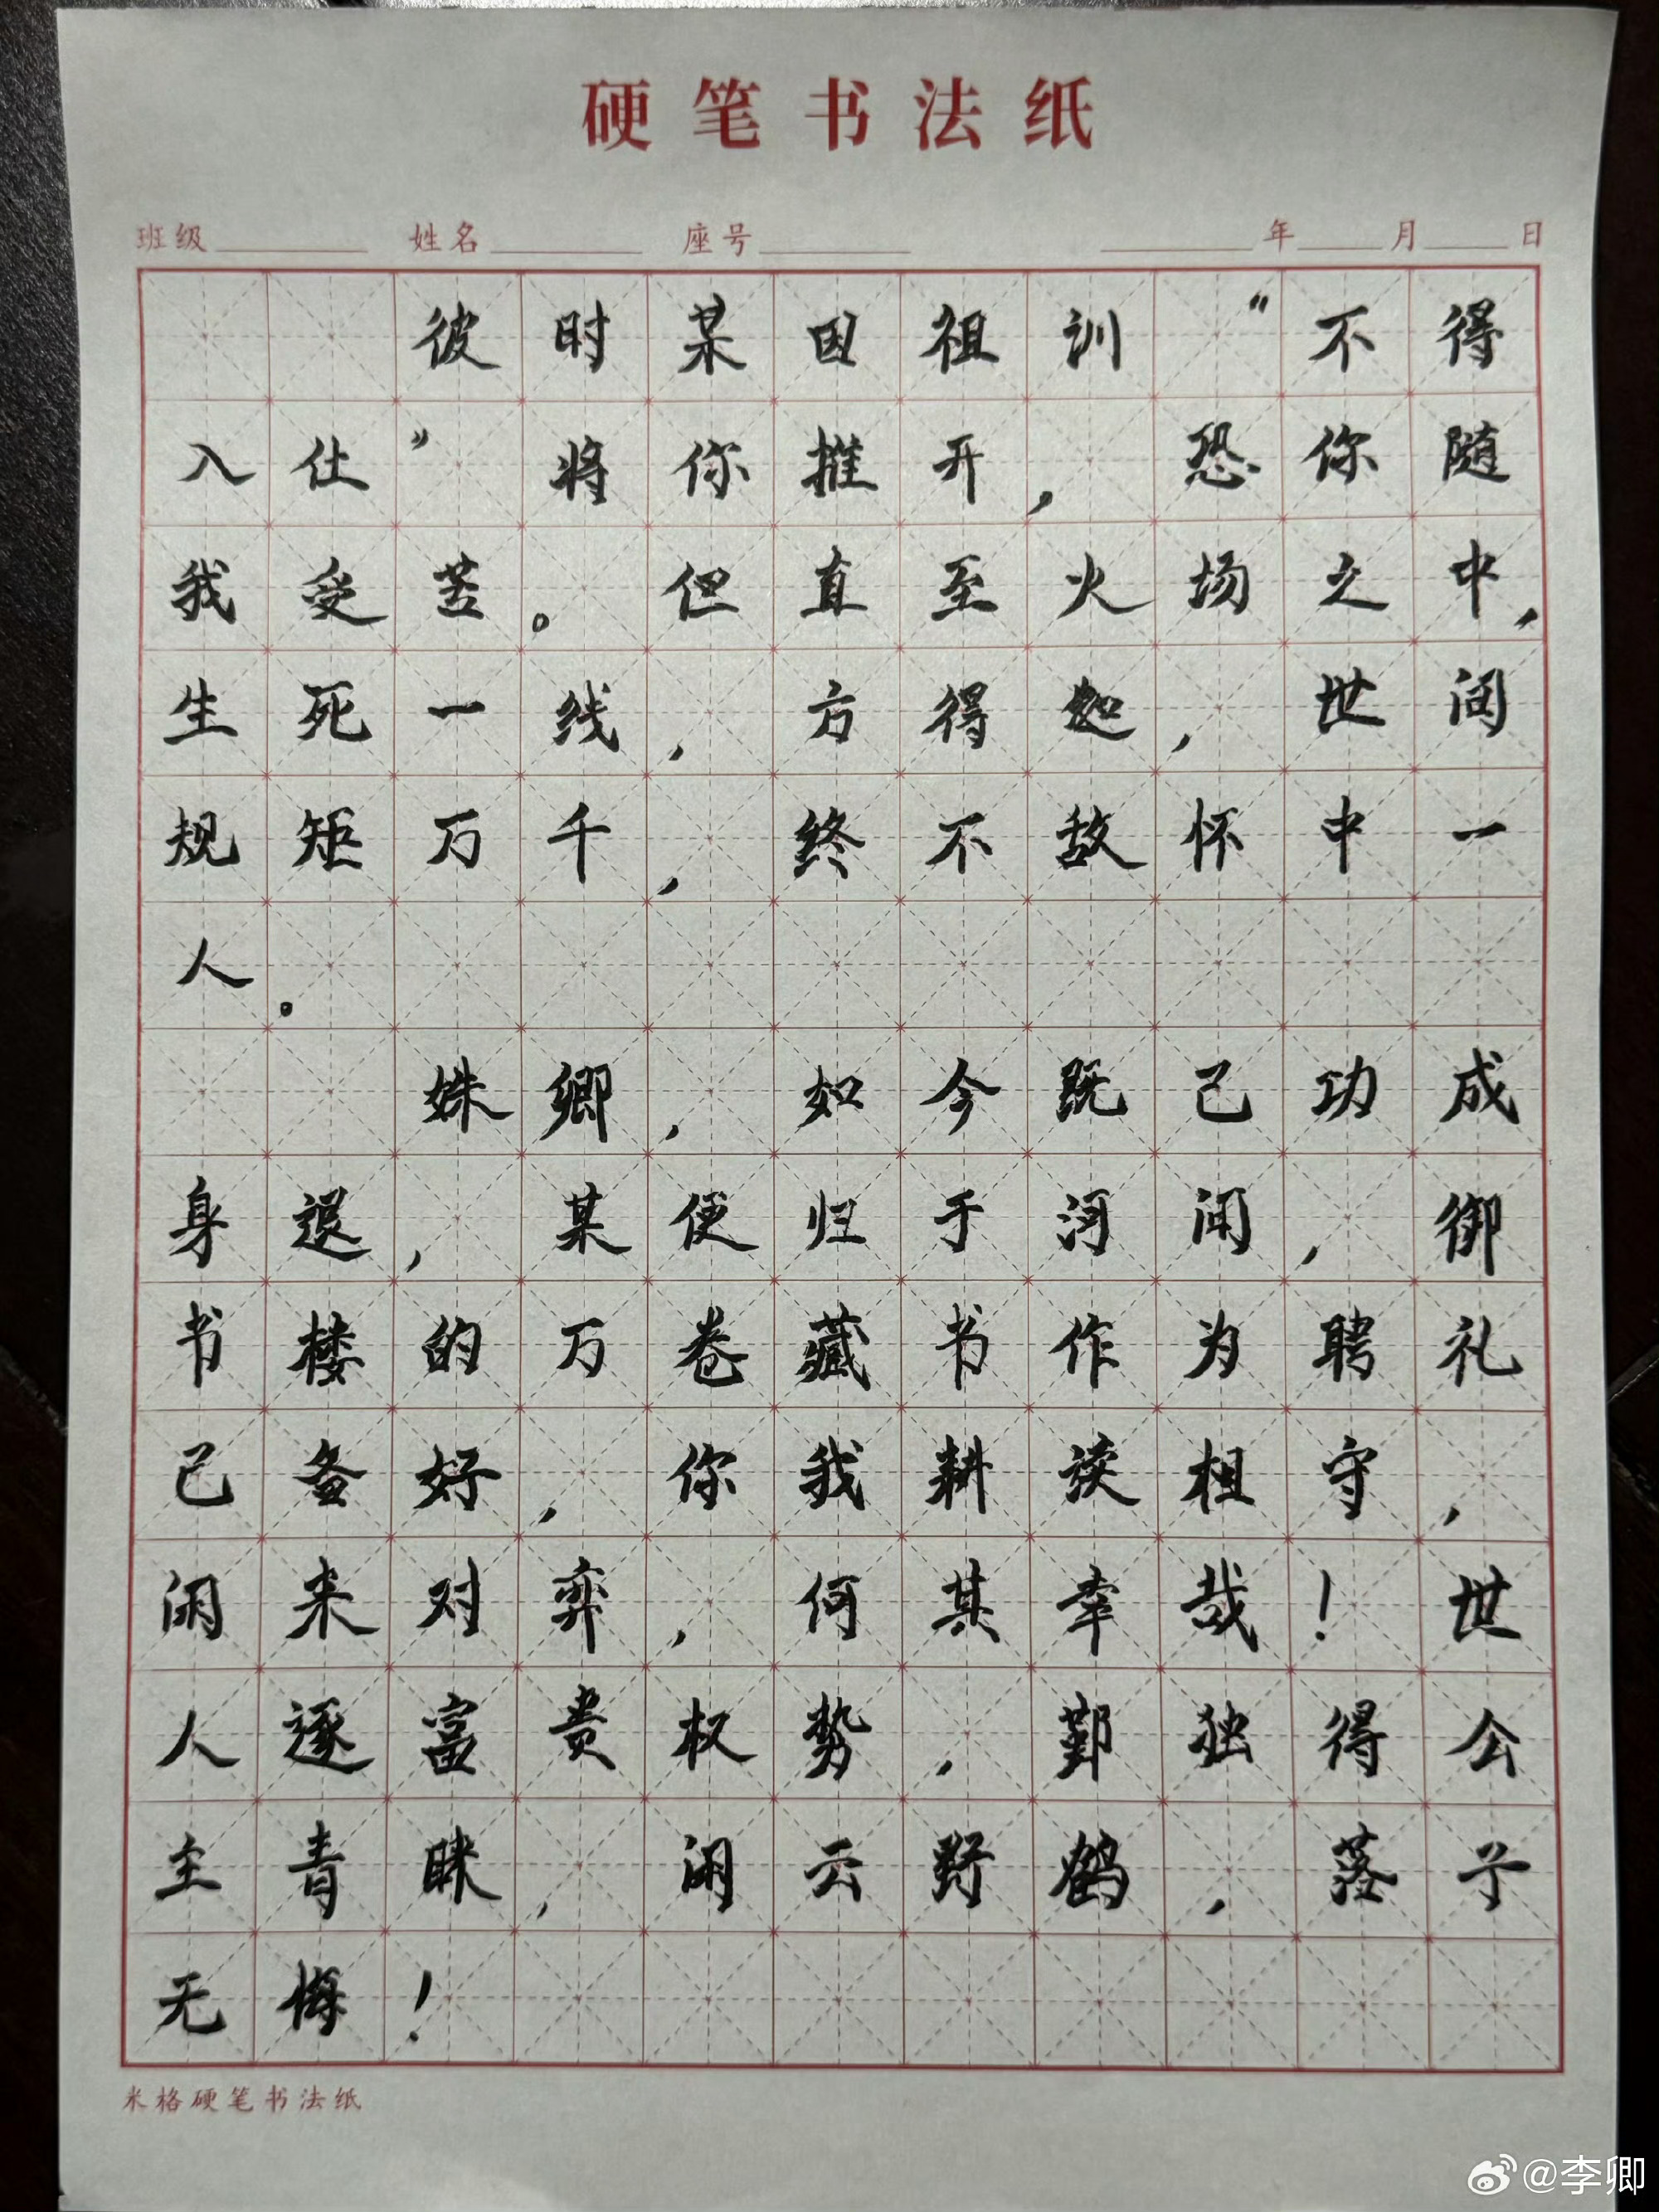 硬笔书法纸
班级 姓名 座号 年 月 日
彼时某因祖训“不得
入仕”将你推开，恐你随
我受苦。但直至火场之中，
生死一线，方得知，世间
规矩万千，终不敌怀中一
人。
姝卿，如今既已功成
身退，某便归于河间，御
书楼的万卷藏书作为聘礼
已备好，你我耕读相守，
闲来对弈，何其幸哉！世
人逐富贵权势，鄞独得公
主青眯，闲云野鹤，落子
无悔！
米格硬笔书法纸
@李卿